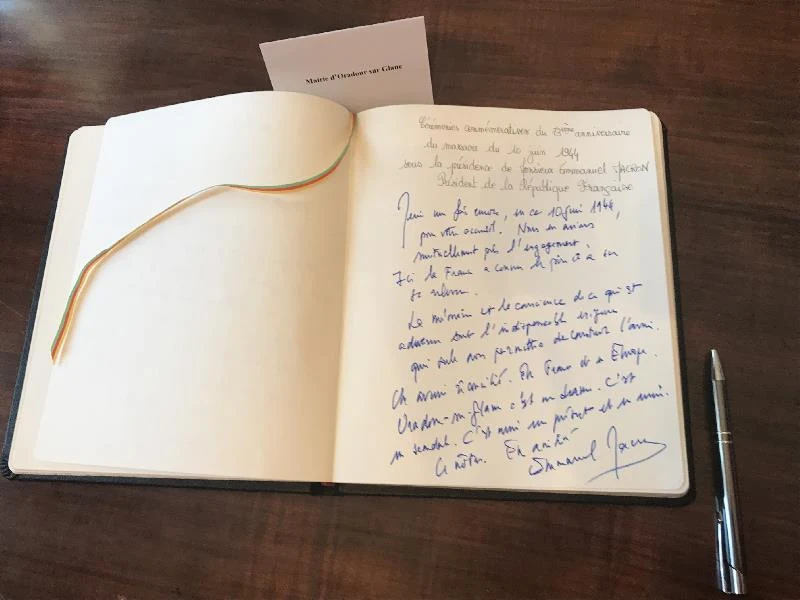 Mairie d'Oradour sur Glane
Cérémonies commémoratives du 73ème anniversaire
du massacre du 10 juin 1944
sous la présidence de Monsieur Emmanuel MACRON
Président de la République Française
une fois encore, en ce 10 juin 1944,
pour votre accueil. Nous en avions
mutuellement pris l'engagement.
Ici la France a connu le pire et a su
se relever.
La mémoire et la conscience de ce qui est
advenu sont l'indispensable exigence
qui seule nous permettra de construire l'avenir.
Un avenir réconcilié. En France et en Europe.
Oradour-sur-Glane c'est un drame. C'est
un scandale. C'est aussi un présent et un avenir.
Le nôtre. En amitié
Emmanuel Macron